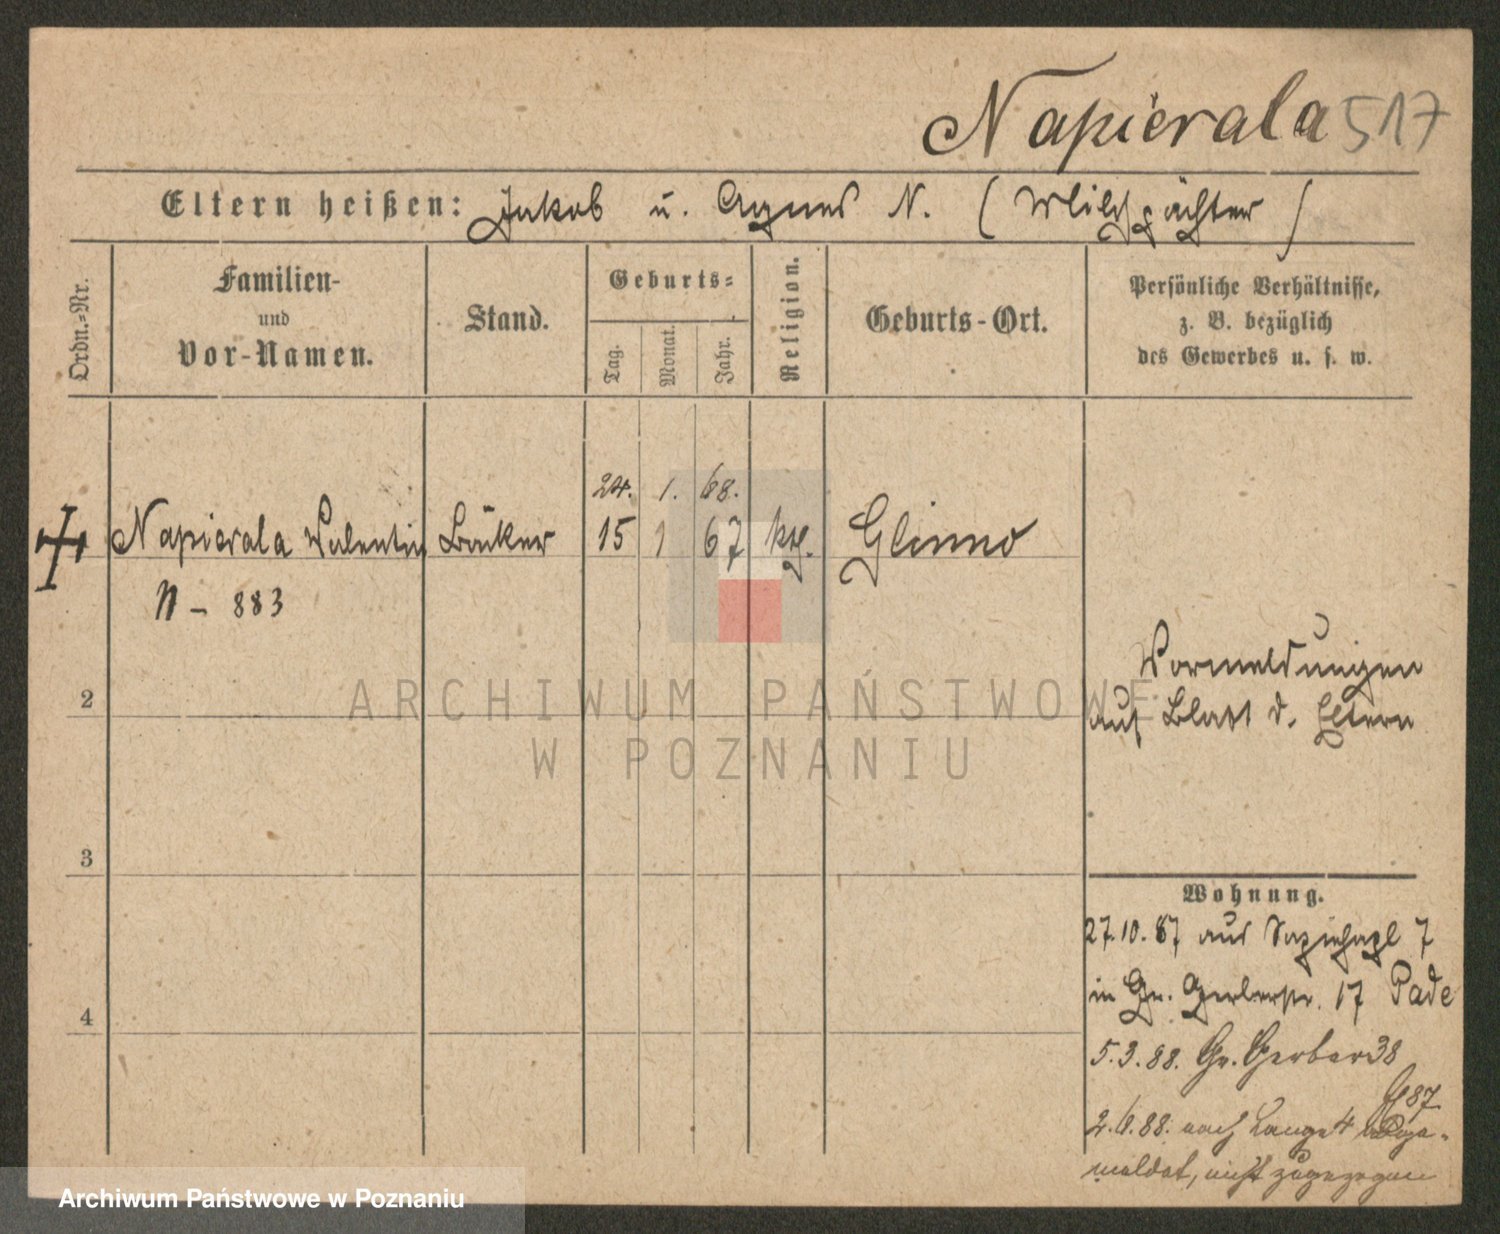 Napierala 517
Eltern heißen: Jakob u. Agnes N. (Milchpächter)
Ordn.-Nr.
Familien-
und
Vor-Namen.
Stand.
Geburts-
Tag.
Monat.
Jahr.
Religion.
Geburts-Ort.
Persönliche Verhältnisse,
z. B. bezüglich
des Gewerbes u. s. w.
24. 1. 68.
Napierala Valentin Bäcker 15 1 67 kath. Glinno
N - 883
Vormeldungen
auf Blatt d. Eltern
2
3
4
Wohnung.
27.10.87 aus 7
in Gr. Gerberstr. 17 Pade
5.3.88. Gr. Gerber 38
87
2.6.88. nach Lange 4
meldet, nicht zugezogen
ARCHIWUM PAŃSTWOWE
W POZNANIU
Archiwum Państwowe w Poznaniu